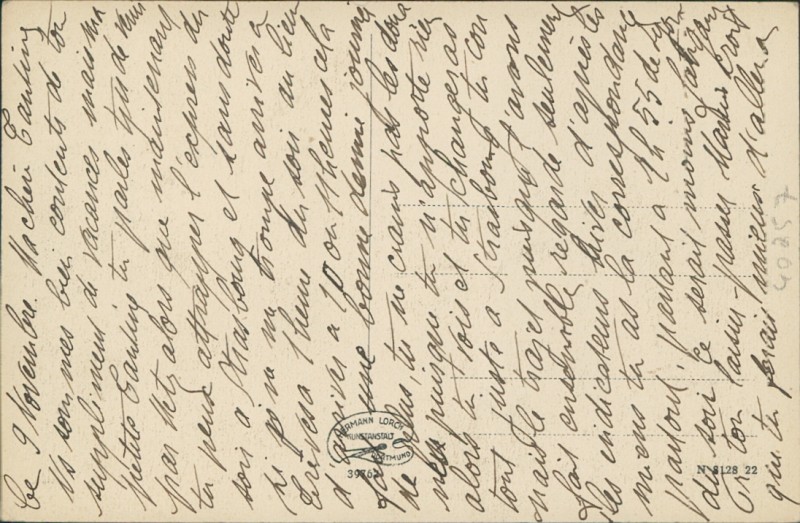 Ce 9 Novembre. Ma chère Tantine
Ns sommes bien contents de ton
supplément de vacances mais ma
tu parles tjrs de venir
par Metz alors que maintenant
tu peux attrapper l'express du
soir à Strasbourg et sans doute
si je ne me trompe arrives à
heure du soir au lieu
d'arriver à 10 ou 11 heures cela
fait une bonne demie journée
De plus, tu ne crains pas les doua
nes puisque tu n'apporte rien
alors tu vois et tu changeras
tout juste à Strasbourg tu con
nais le trajet puisque l'avons
fait ensemble regarde seulement
les indicateurs suisses d'après les
miens tu as la correspondance
partout partant à 2h.55 de
du soir ce serait moins fatigant
Or ton laisser-passer
que tu ferais mieux d'aller à
HERMANN LORCH
KUNSTANSTALT
DORTMUND
39762
N° 8128 22
40257